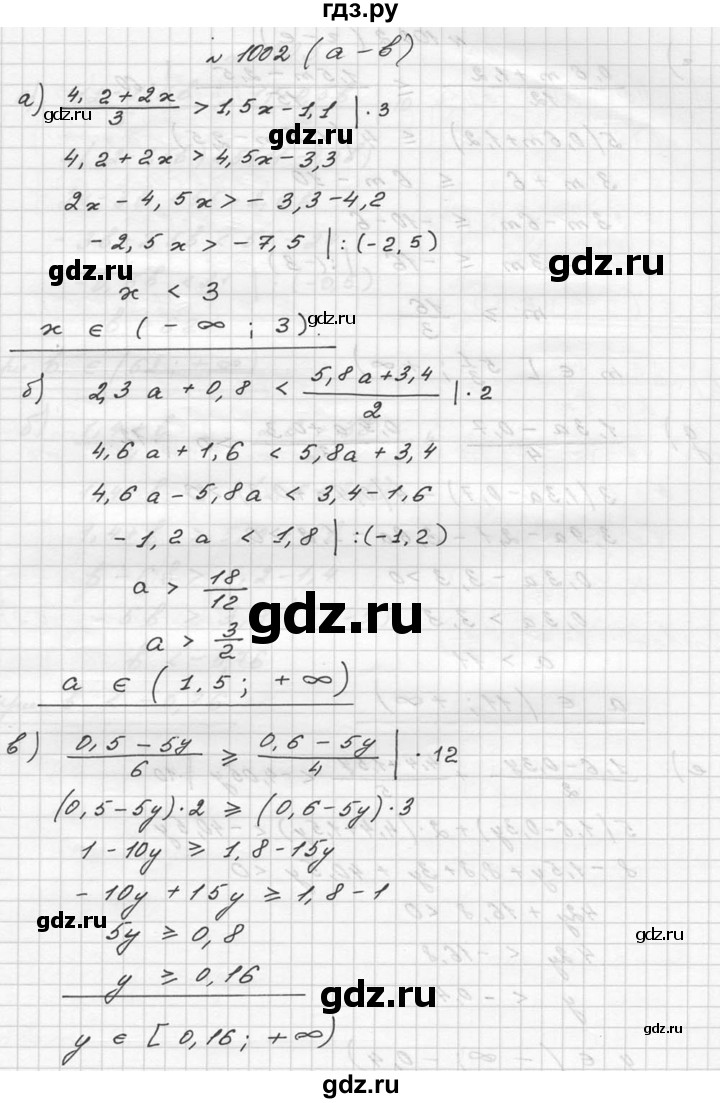 гдз.ру
№ 1002 (а – в)
а) (4,2+2x)/3 > 1,5x – 1,1 | · 3
4,2 + 2x > 4,5x – 3,3
2x – 4,5x > – 3,3 – 4,2
– 2,5x > – 7,5 | : (–2,5)
x < 3
x ∈ (– ∞ ; 3).
б) 2,3 a + 0,8 < (5,8a+3,4)/2 | · 2
4,6 a + 1,6 < 5,8a + 3,4
4,6 a – 5,8a < 3,4 – 1,6
– 1,2a < 1,8 | : (–1,2)
a > 18/12
a > 3/2
a ∈ (1,5 ; + ∞)
в) (0,5 – 5y)/6 ⩾ (0,6 – 5y)/4 | · 12
(0,5–5y)·2 ⩾ (0,6–5y)·3
1 – 10y ⩾ 1,8 – 15y
– 10y + 15y ⩾ 1,8 – 1
5y ⩾ 0,8
y ⩾ 0,16
y ∈ [0,16 ; + ∞)
gdz.ru
gdz.ru
gdz.ru
gdz.ru
gdz.ru
gdz.ru
gdz.ru
gdz.ru
gdz.ru
gdz.ru
gdz.ru
gdz.ru
gdz.ru
gdz.ru